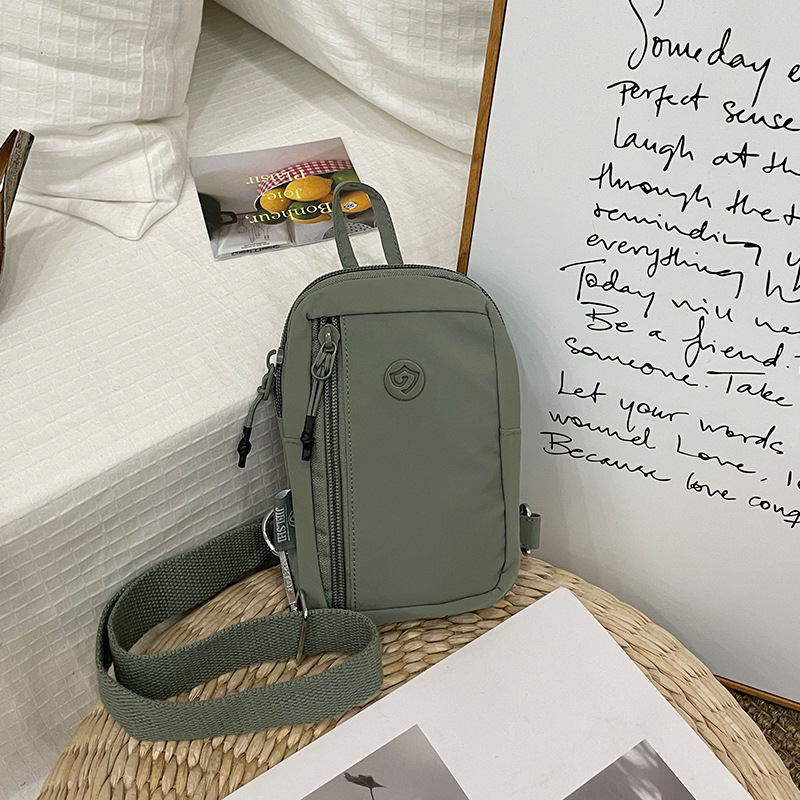 Plaisir
Joie
Bonheur.
JIELSHI
Someday e
Perfect sense
laugh at th
through the t
reminding y
everything
Today will ne
Be a friend.
someone. Take
Let your words
wound Love,
Because love